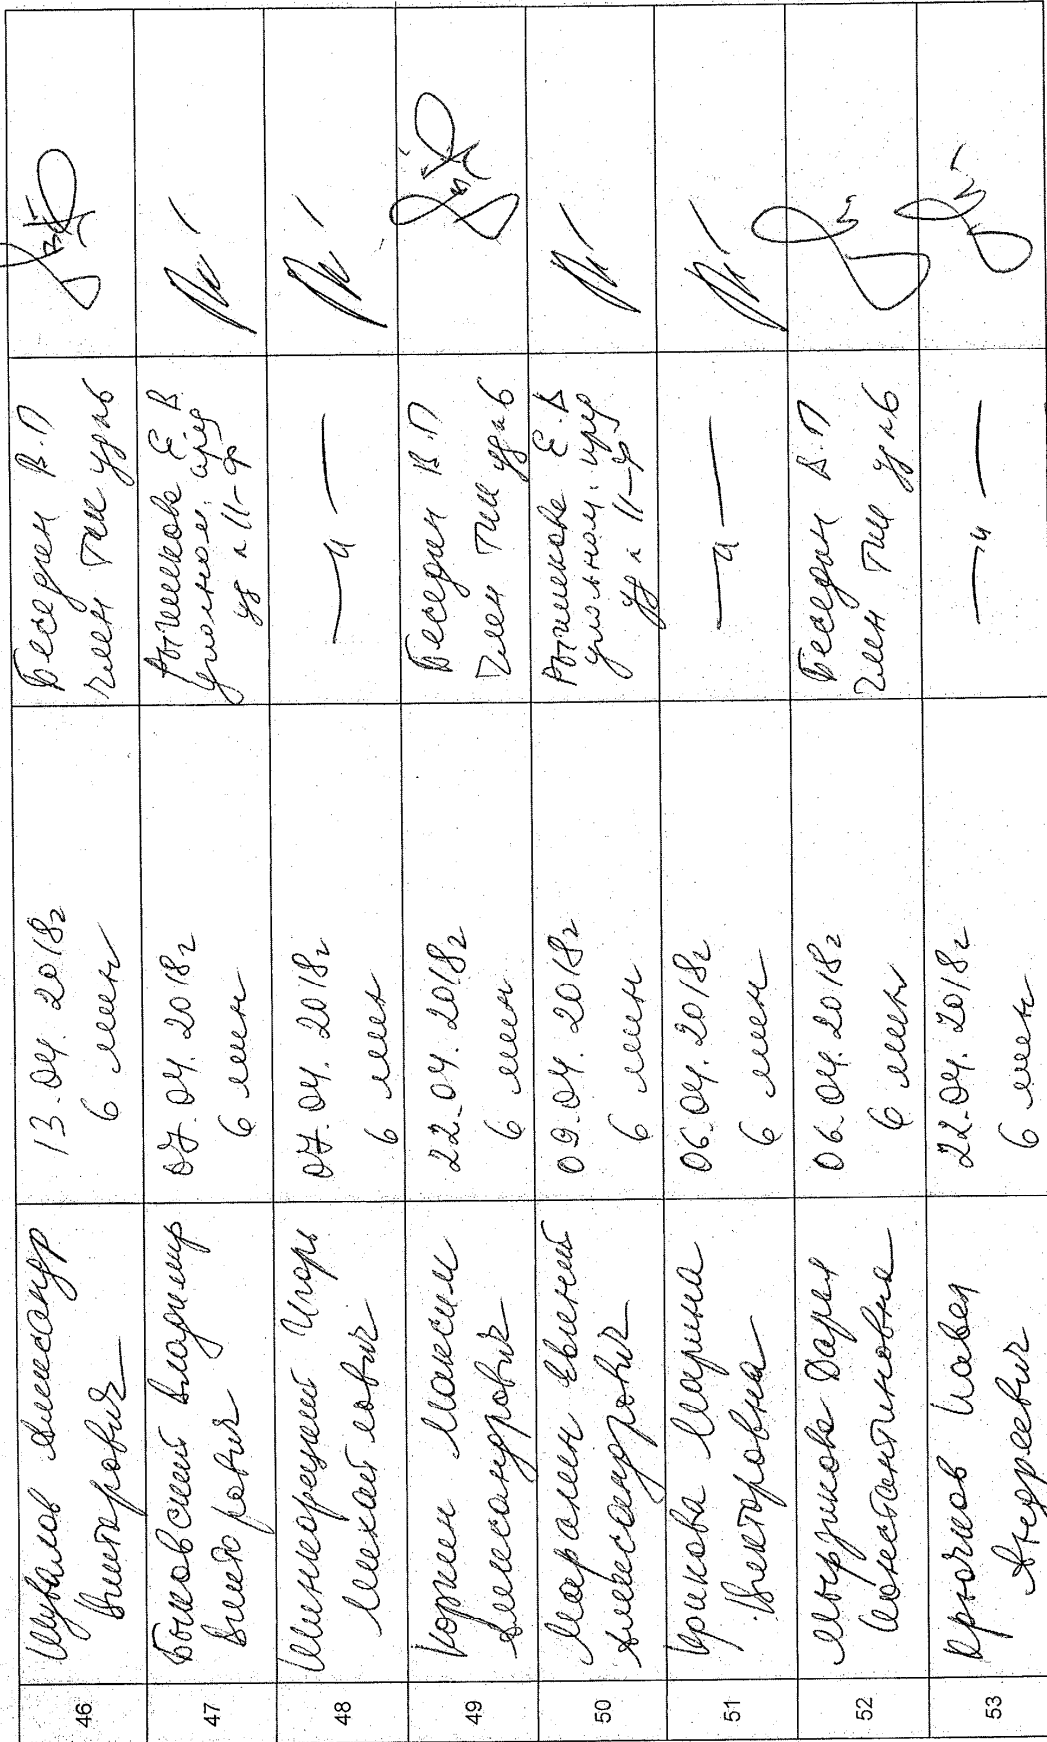 46
Шувалов Александр
Викторович
13.04.2018г
6 мин
Беседин В.П
член ТИК уд №6
47
Быковский Владимир
Викторович
07.04.2018г
6 мин
Е.В
уд № 11-ф
48
Игорь
Михайлович
07.04.2018г
6 мин
— " —
49
Коркин Максим
Александрович
22.04.2018г
6 мин
Беседин В.П
член ТИК уд №6
50
Евгений
Александрович
09.04.2018г
6 мин
Е.В
уд № 11-ф
51
Крикова Марина
Викторовна
06.04.2018г
6 мин
— " —
52
Дарья
Константиновна
06.04.2018г
6 мин
Беседин В.П
член ТИК уд №6
53
Крючков Павел
Андреевич
22.04.2018г
6 мин
— " —